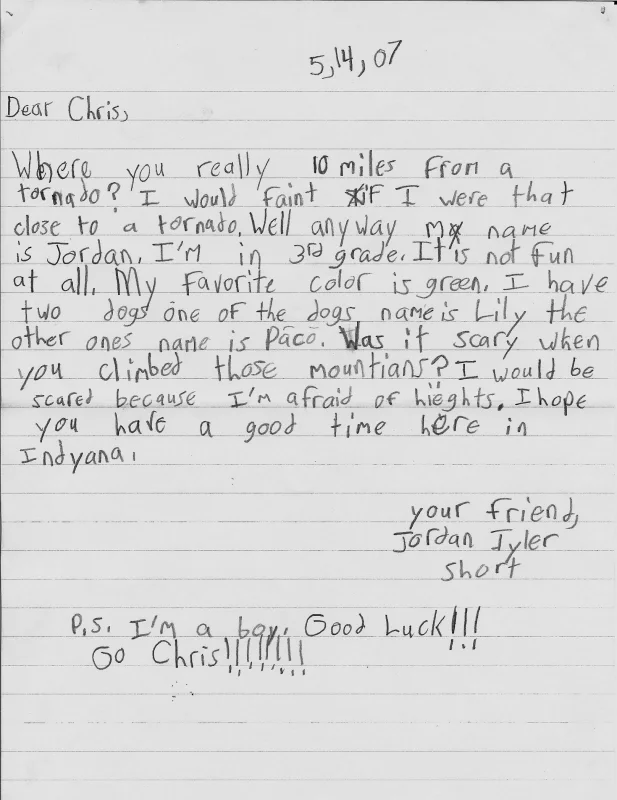 5,14,07
Dear Chris,
Where you really 10 miles from a
tornado? I would faint if I were that
close to a tornado. Well anyway my name
is Jordan. I'm in 3rd grade. It is not fun
at all. My favorite color is green. I have
two dogs one of the dogs name is Lily the
other ones name is Pãcō. Was it scary when
you climbed those mountians? I would be
scared because I'm afraid of hieghts. I hope
you have a good time here in
Indyana.
your friend,
Jordan Tyler
short
P.S. I'm a boy. Good Luck!!!
Go Chris!!!!!!!!